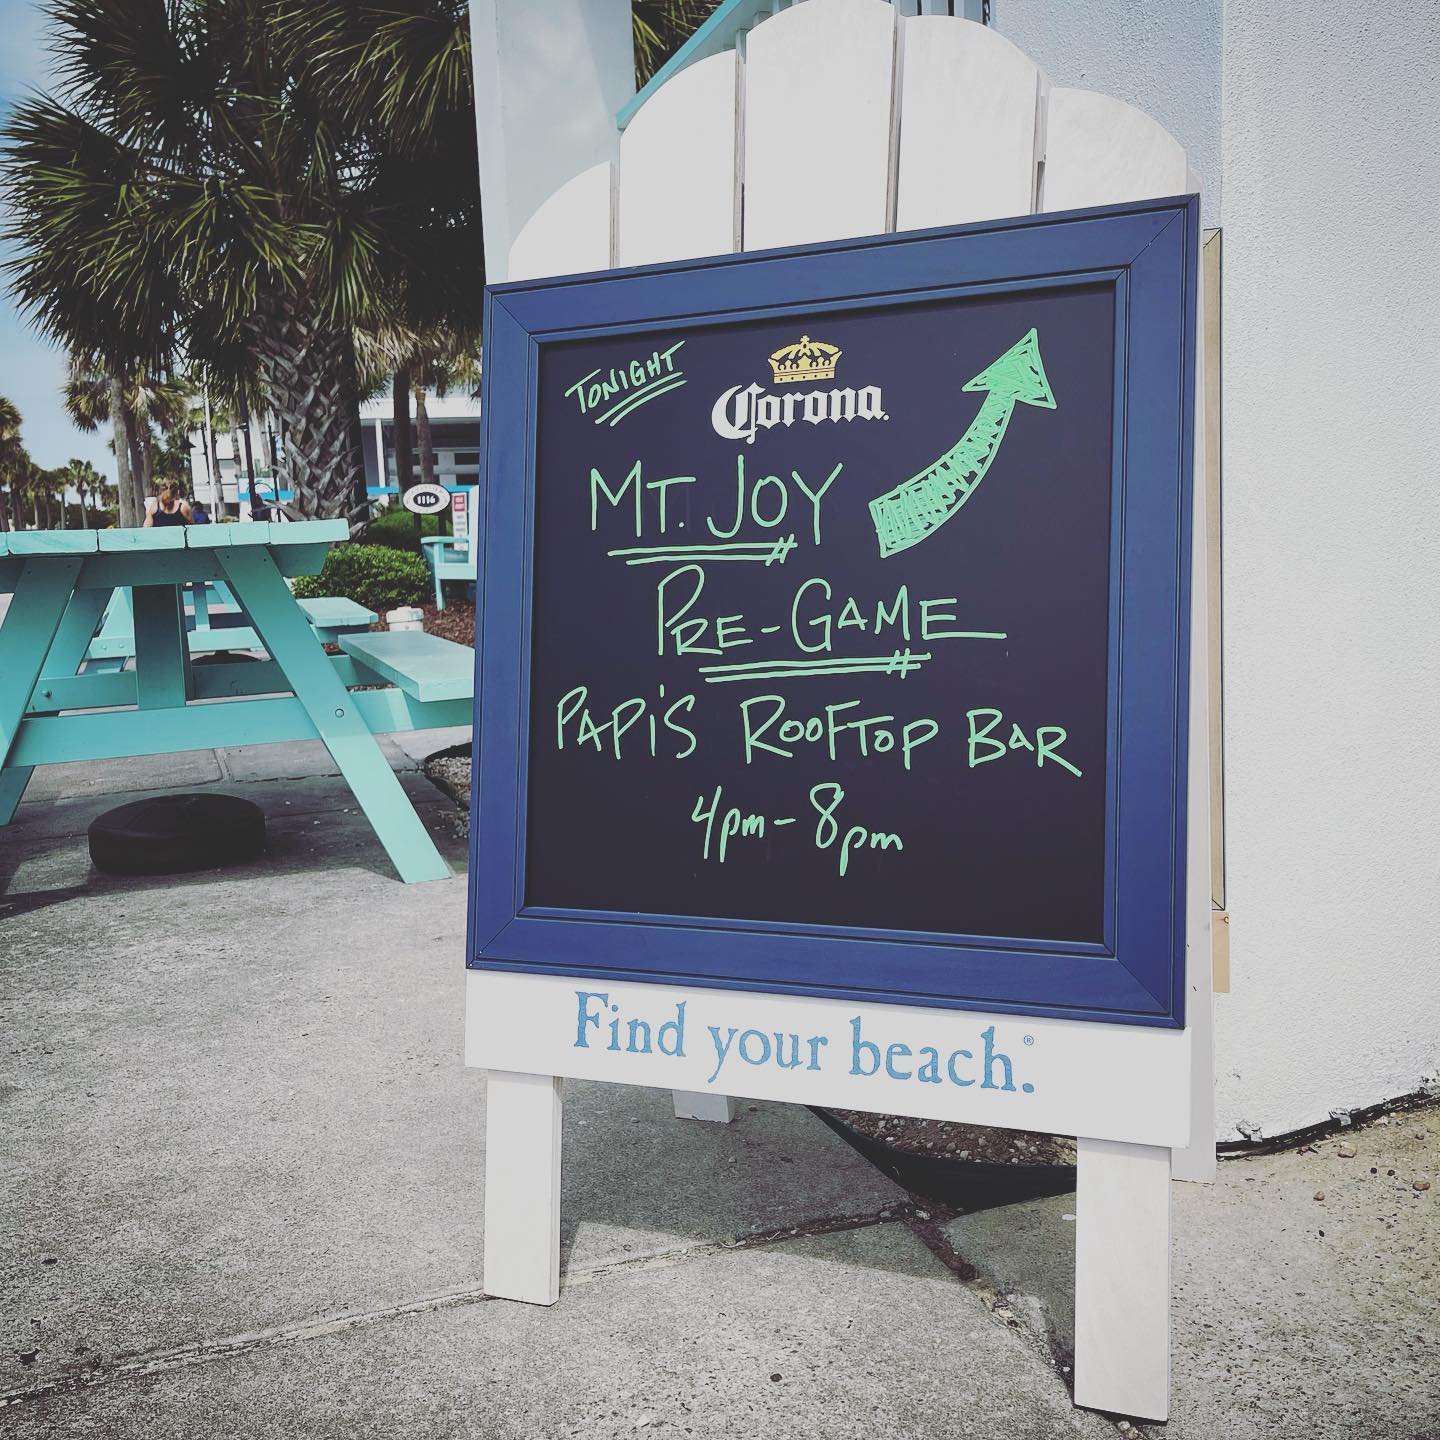 TONIGHT
Corona
MT. JOY
PRE-GAME
PAPI'S ROOFTOP BAR
4pm - 8pm
Find your beach.®
1116